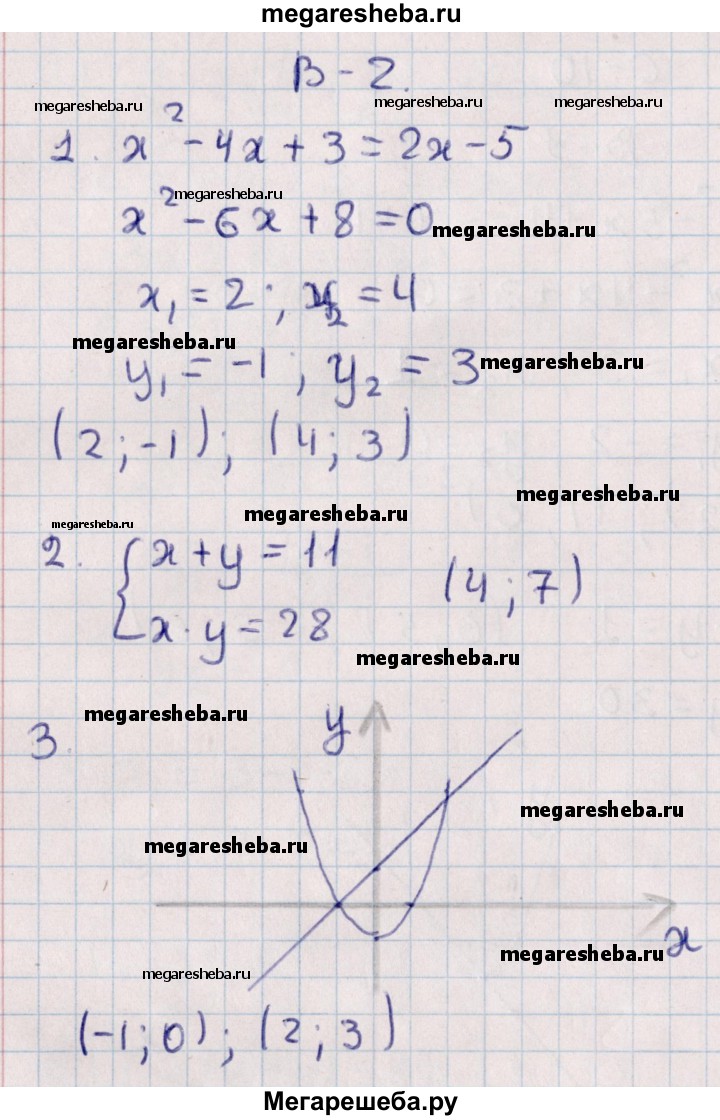 megaresheba.ru
В - 2.
megaresheba.ru megaresheba.ru megaresheba.ru
1. x² - 4x + 3 = 2x - 5
megaresheba.ru
x² - 6x + 8 = 0 megaresheba.ru
x₁ = 2; x₂ = 4
megaresheba.ru
y₁ = -1; y₂ = 3 megaresheba.ru
(2; -1); (4; 3)
megaresheba.ru
megaresheba.ru megaresheba.ru
2. { x + y = 11
(4; 7)
x · y = 28
megaresheba.ru
megaresheba.ru
3. y
megaresheba.ru
megaresheba.ru
x
megaresheba.ru
megaresheba.ru
(-1; 0); (2; 3)
Мегарешеба.ру